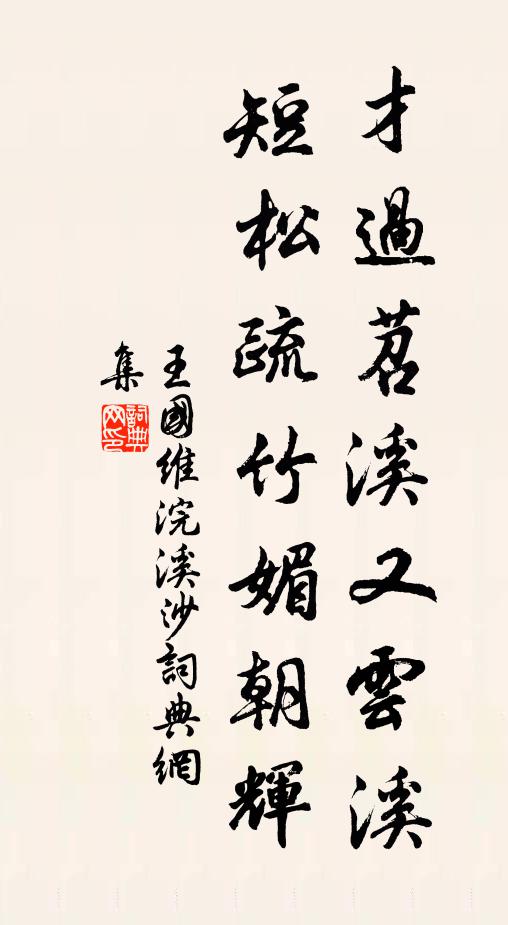 才過苕溪又雲溪
短松疏竹媚朝輝
王國維浣溪沙詞典網
集
詞典
网印